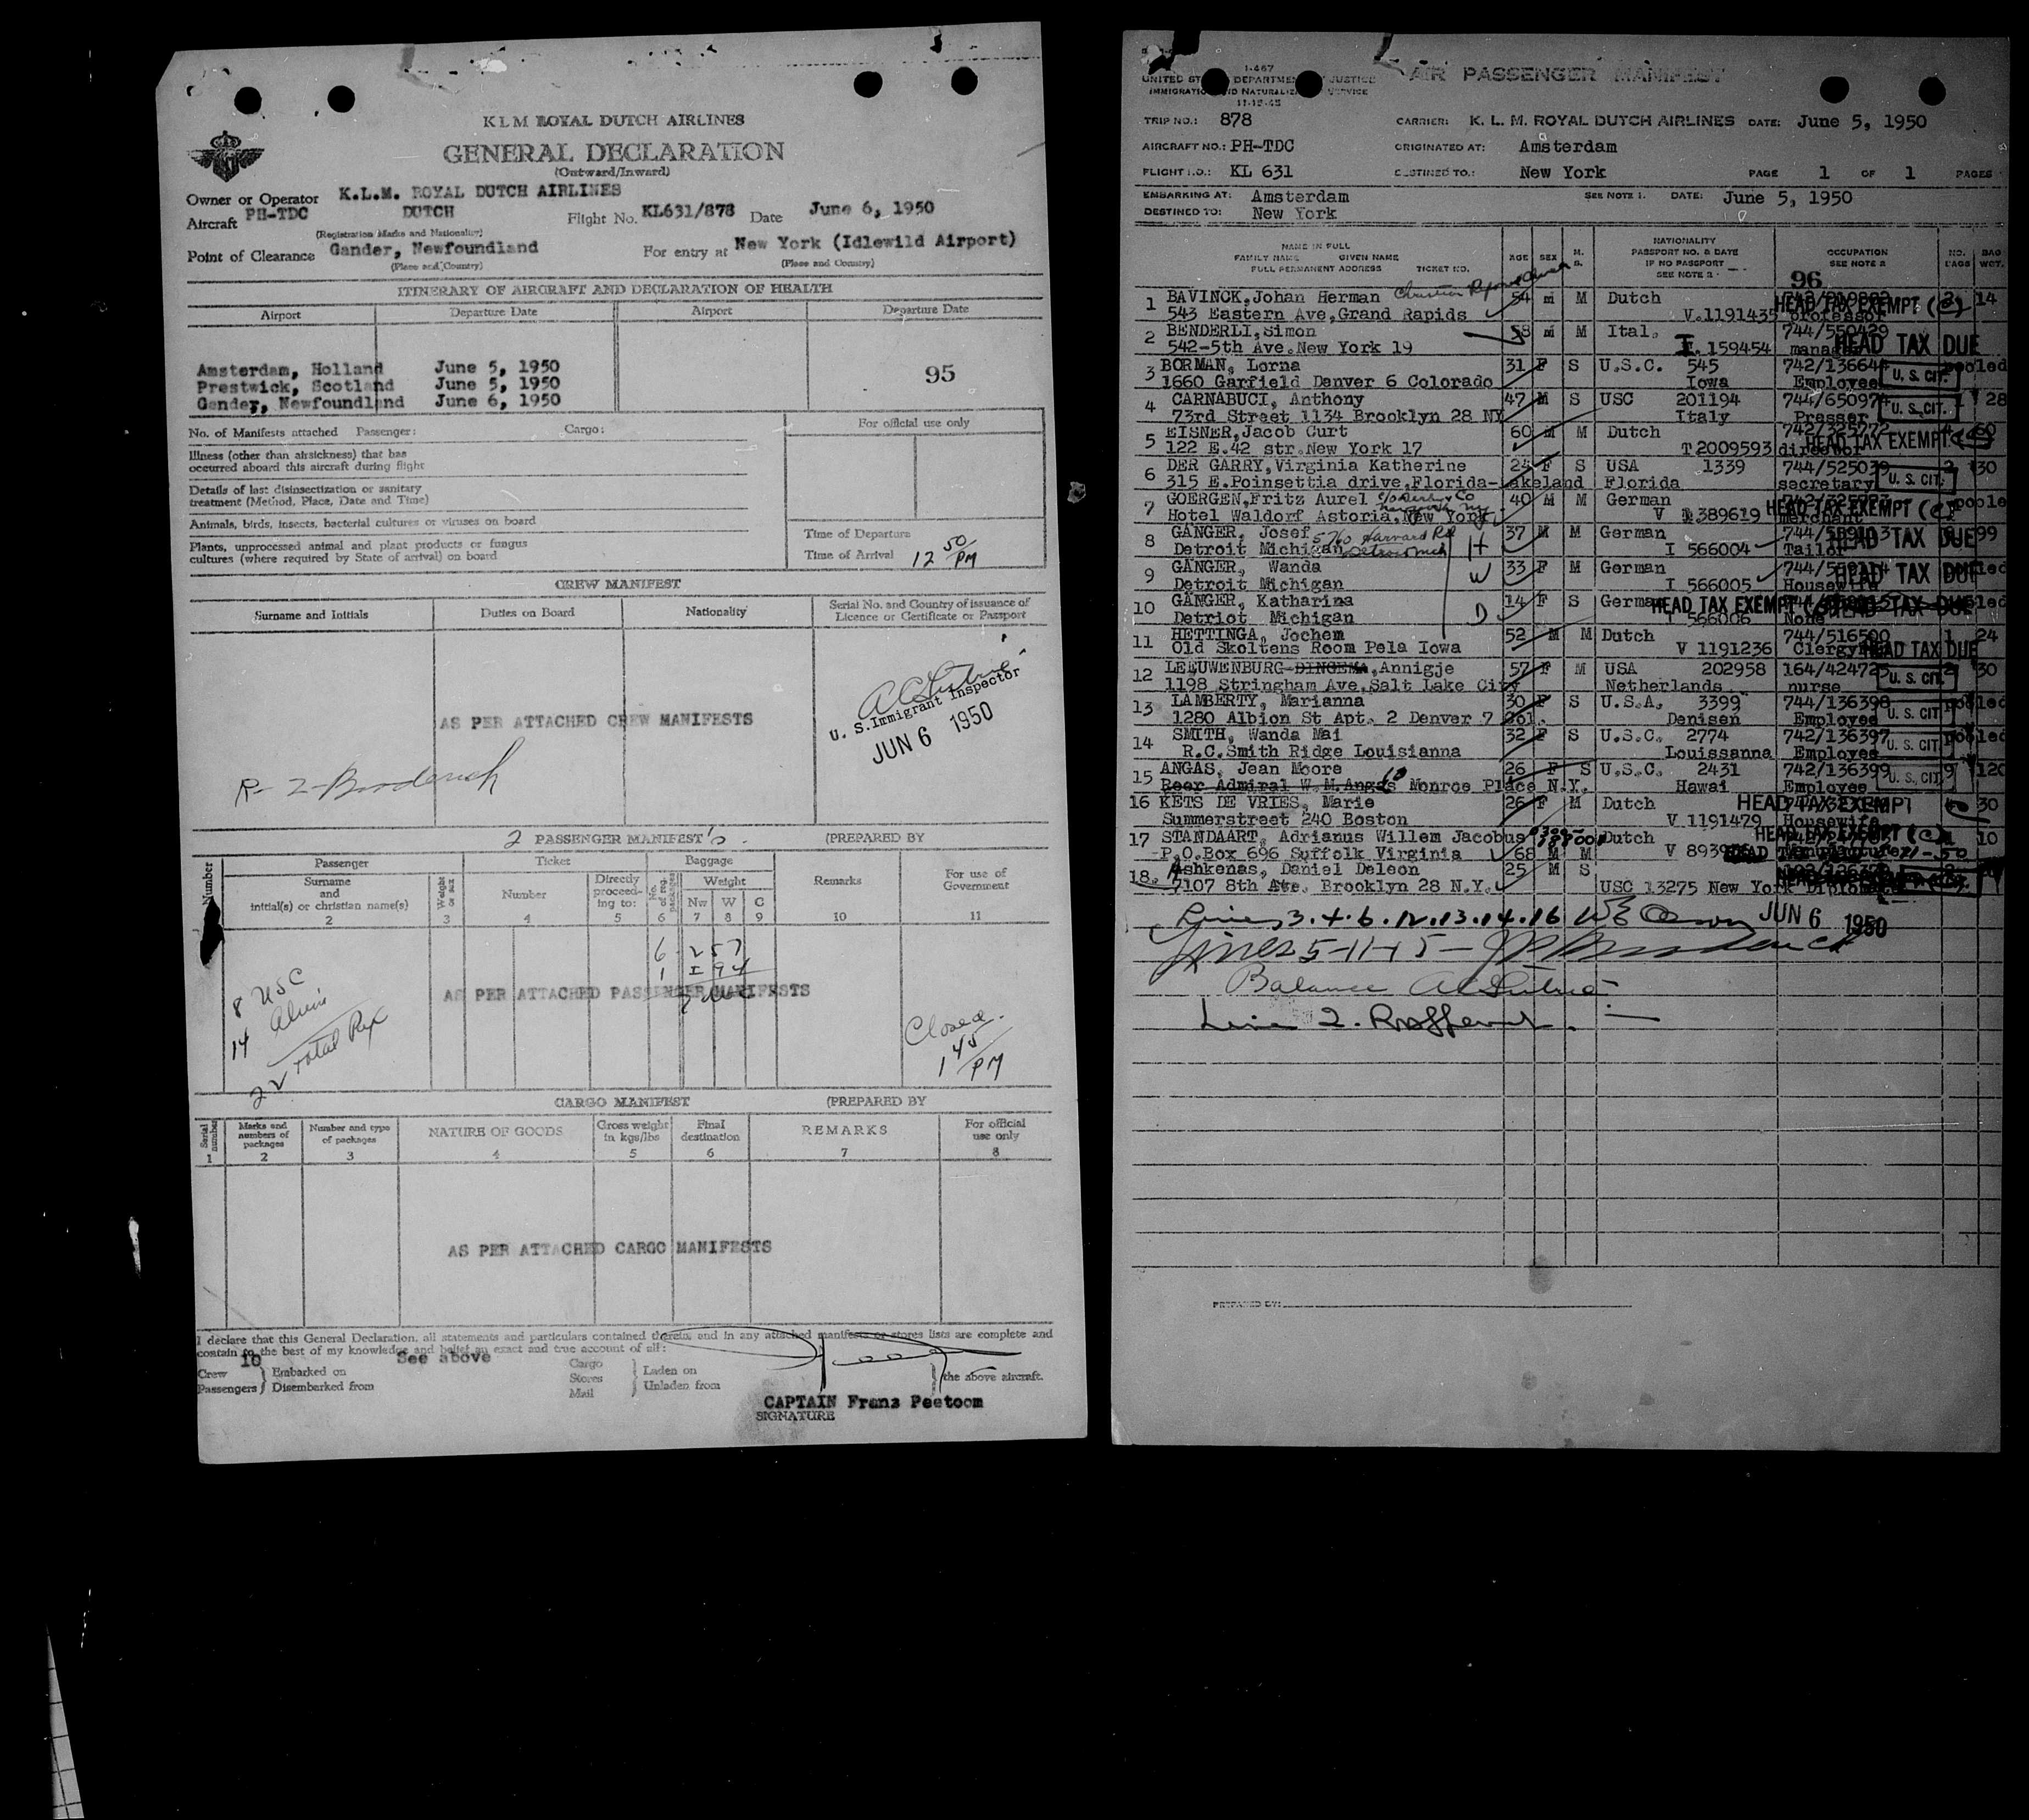 KLM ROYAL DUTCH AIRLINES
GENERAL DECLARATION
(Outward/Inward)
Owner or Operator K.L.M. ROYAL DUTCH AIRLINES
Aircraft PH-TDC DUTCH Flight No. KL631/878 Date June 6, 1950
(Registration Marks and Nationality)
Point of Clearance Gander, Newfoundland For entry at New York (Idlewild Airport)
(Place and Country) (Place and Country)
ITINERARY OF AIRCRAFT AND DECLARATION OF HEALTH
Airport Departure Date Airport Departure Date
Amsterdam, Holland June 5, 1950 95
Prestwick, Scotland June 5, 1950
Gander, Newfoundland June 6, 1950
No. of Manifests attached Passenger: Cargo: For official use only
Illness (other than airsickness) that has
occurred aboard this aircraft during flight
Details of last disinsectization or sanitary
treatment (Method, Place, Date and Time)
Animals, birds, insects, bacterial cultures or viruses on board
Plants, unprocessed animal and plant products or fungus
cultures (where required by State of arrival) on board
Time of Departure
Time of Arrival 12 50 PM
CREW MANIFEST
Surname and Initials Duties on Board Nationality Serial No. and Country of issuance of
Licence or Certificate or Passport
AS PER ATTACHED CREW MANIFESTS
U. S. Immigrant Inspector
JUN 6 1950
R-2-Broderick
2 PASSENGER MANIFEST's (PREPARED BY
Number Passenger Ticket Baggage
Surname
and
initial(s) or christian name(s)
Weight or sex Number Directly
proceed-
ing to:
No. of reg. packages Weight
Nw W C
Remarks For use of
Government
2 3 4 5 6 7 8 9 10 11
6 257
1 I 94
AS PER ATTACHED PASSENGER MANIFESTS
8 USC
14 Aliens
22 Total Psx
Closed
1 45 PM
CARGO MANIFEST (PREPARED BY
Serial number Marks and
numbers of
packages
Number and type
of packages
NATURE OF GOODS Gross weight
in kgs/lbs
Final
destination
REMARKS For official
use only
1 2 3 4 5 6 7 8
AS PER ATTACHED CARGO MANIFESTS
I declare that this General Declaration, all statements and particulars contained therein, and in any attached manifests or stores lists are complete and
contain to the best of my knowledge and belief an exact and true account of all:
10 See above
Crew Passengers } Embarked on Disembarked from
Cargo Stores Mail } Laden on Unladen from } the above aircraft.
CAPTAIN Frans Peetoom
SIGNATURE
AIR PASSENGER MANIFEST
I-467
UNITED ST DEPARTMEN JUSTICE
IMMIGRATIO ND NATURALIZ SERVICE
11-12-45
TRIP NO.: 878 CARRIER: K. L. M. ROYAL DUTCH AIRLINES DATE: June 5, 1950
AIRCRAFT NO.: PH-TDC ORIGINATED AT: Amsterdam
FLIGHT I.D.: KL 631 DESTINED TO.: New York PAGE 1 OF 1 PAGES
EMBARKING AT: Amsterdam SEE NOTE 1. DATE: June 5, 1950
DESTINED TO: New York
NAME IN FULL
FAMILY NAME GIVEN NAME
FULL PERMANENT ADDRESS TICKET NO.
AGE SEX M. S.
NATIONALITY
PASSPORT NO. & DATE
IF NO PASSPORT
SEE NOTE 2
OCCUPATION
SEE NOTE 2
NO. BAGS BAG WGT.
96
1 BAVINCK, Johan Herman 54 m M Dutch HEAD TAX EXEMPT (C) 2 14
543 Eastern Ave, Grand Rapids V. 1191435 professor
2 BENDERLI, Simon 58 m M Ital. 744/550429
542-5th Ave. New York 19 I. 159454 manager HEAD TAX DUE
3 BORMAN, Lorna 31 F S U.S.C. 545 742/136644 pooled
1660 Garfield Denver 6 Colorado Iowa Employee U. S. CIT.
4 CARNABUCI, Anthony 47 M S USC 201194 744/650974 1 28
73rd Street 1134 Brooklyn 28 NY Italy Presser U. S. CIT.
5 EISNER, Jacob Curt 60 M M Dutch 742/325772 4 60
122 E.42 str. New York 17 T 2009593 director HEAD TAX EXEMPT
6 DER GARRY, Virginia Katherine 24 F S USA 1339 744/525039 2 30
315 E.Poinsettia drive, Florida-Lakeland Florida secretary U. S. CIT.
7 GOERGEN, Fritz Aurel 40 M M German 742/325773 pooled
Hotel Waldorf Astoria, New York V 1389619 merchant HEAD TAX EXEMPT (C)
8 GÄNGER, Josef 5760 Harvard Rd 37 M M German 99
Detroit Michigan Detroit Mich H I 566004 Tailor HEAD TAX DUE
9 GÄNGER, Wanda 33 F M German pooled
Detroit Michigan W I 566005 Housewife HEAD TAX DUE
10 GÄNGER, Katharina 14 F S German HEAD TAX EXEMPT HEAD TAX DUE
Detriot Michigan D I 566006 None
11 HETTINGA, Jochem 52 M M Dutch 744/516500 1 24
Old Skoltens Room Pela Iowa V 1191236 Clergy HEAD TAX DUE
12 LEEUWENBURG-DINGEMA, Annigje 57 F M USA 202958 164/424725 2 30
1198 Stringham Ave, Salt Lake City Netherlands nurse U. S. CIT.
13 LAMBERTY, Marianna 30 F S U.S.A. 3399 744/136398 pooled
1280 Albion St Apt. 2 Denver 7 Col. Denisen Employee U. S. CIT.
14 SMITH, Wanda Mai 32 F S U.S.C. 2774 742/136397 pooled
R.C.Smith Ridge Louisianna Louissanna Employee U. S. CIT.
15 ANGAS, Jean Moore 26 F S U.S.C. 2431 742/136399 9 120
Reer Admiral W.M.Angas 10 Monroe Place N.Y. Hawai Employee U. S. CIT.
16 KETS DE VRIES, Marie 26 F M Dutch HEAD TAX EXEMPT 30
Summerstreet 240 Boston V 1191479 Housewife
17 STANDAART, Adrianus Willem Jacobus Dutch HEAD TAX EXEMPT (C) 1 10
P.O.Box 696 Suffolk Virginia 68 M M
18. Ashkenas, Daniel Deleon 25 M S
7107 8th Ate. Brooklyn 28 N.Y. USC 13275 New York
Lines 3.4.6.12.13.14.16 JUN 6 1950
Lines 5-11-15-
Balance
Line 2.
PREPARED BY: